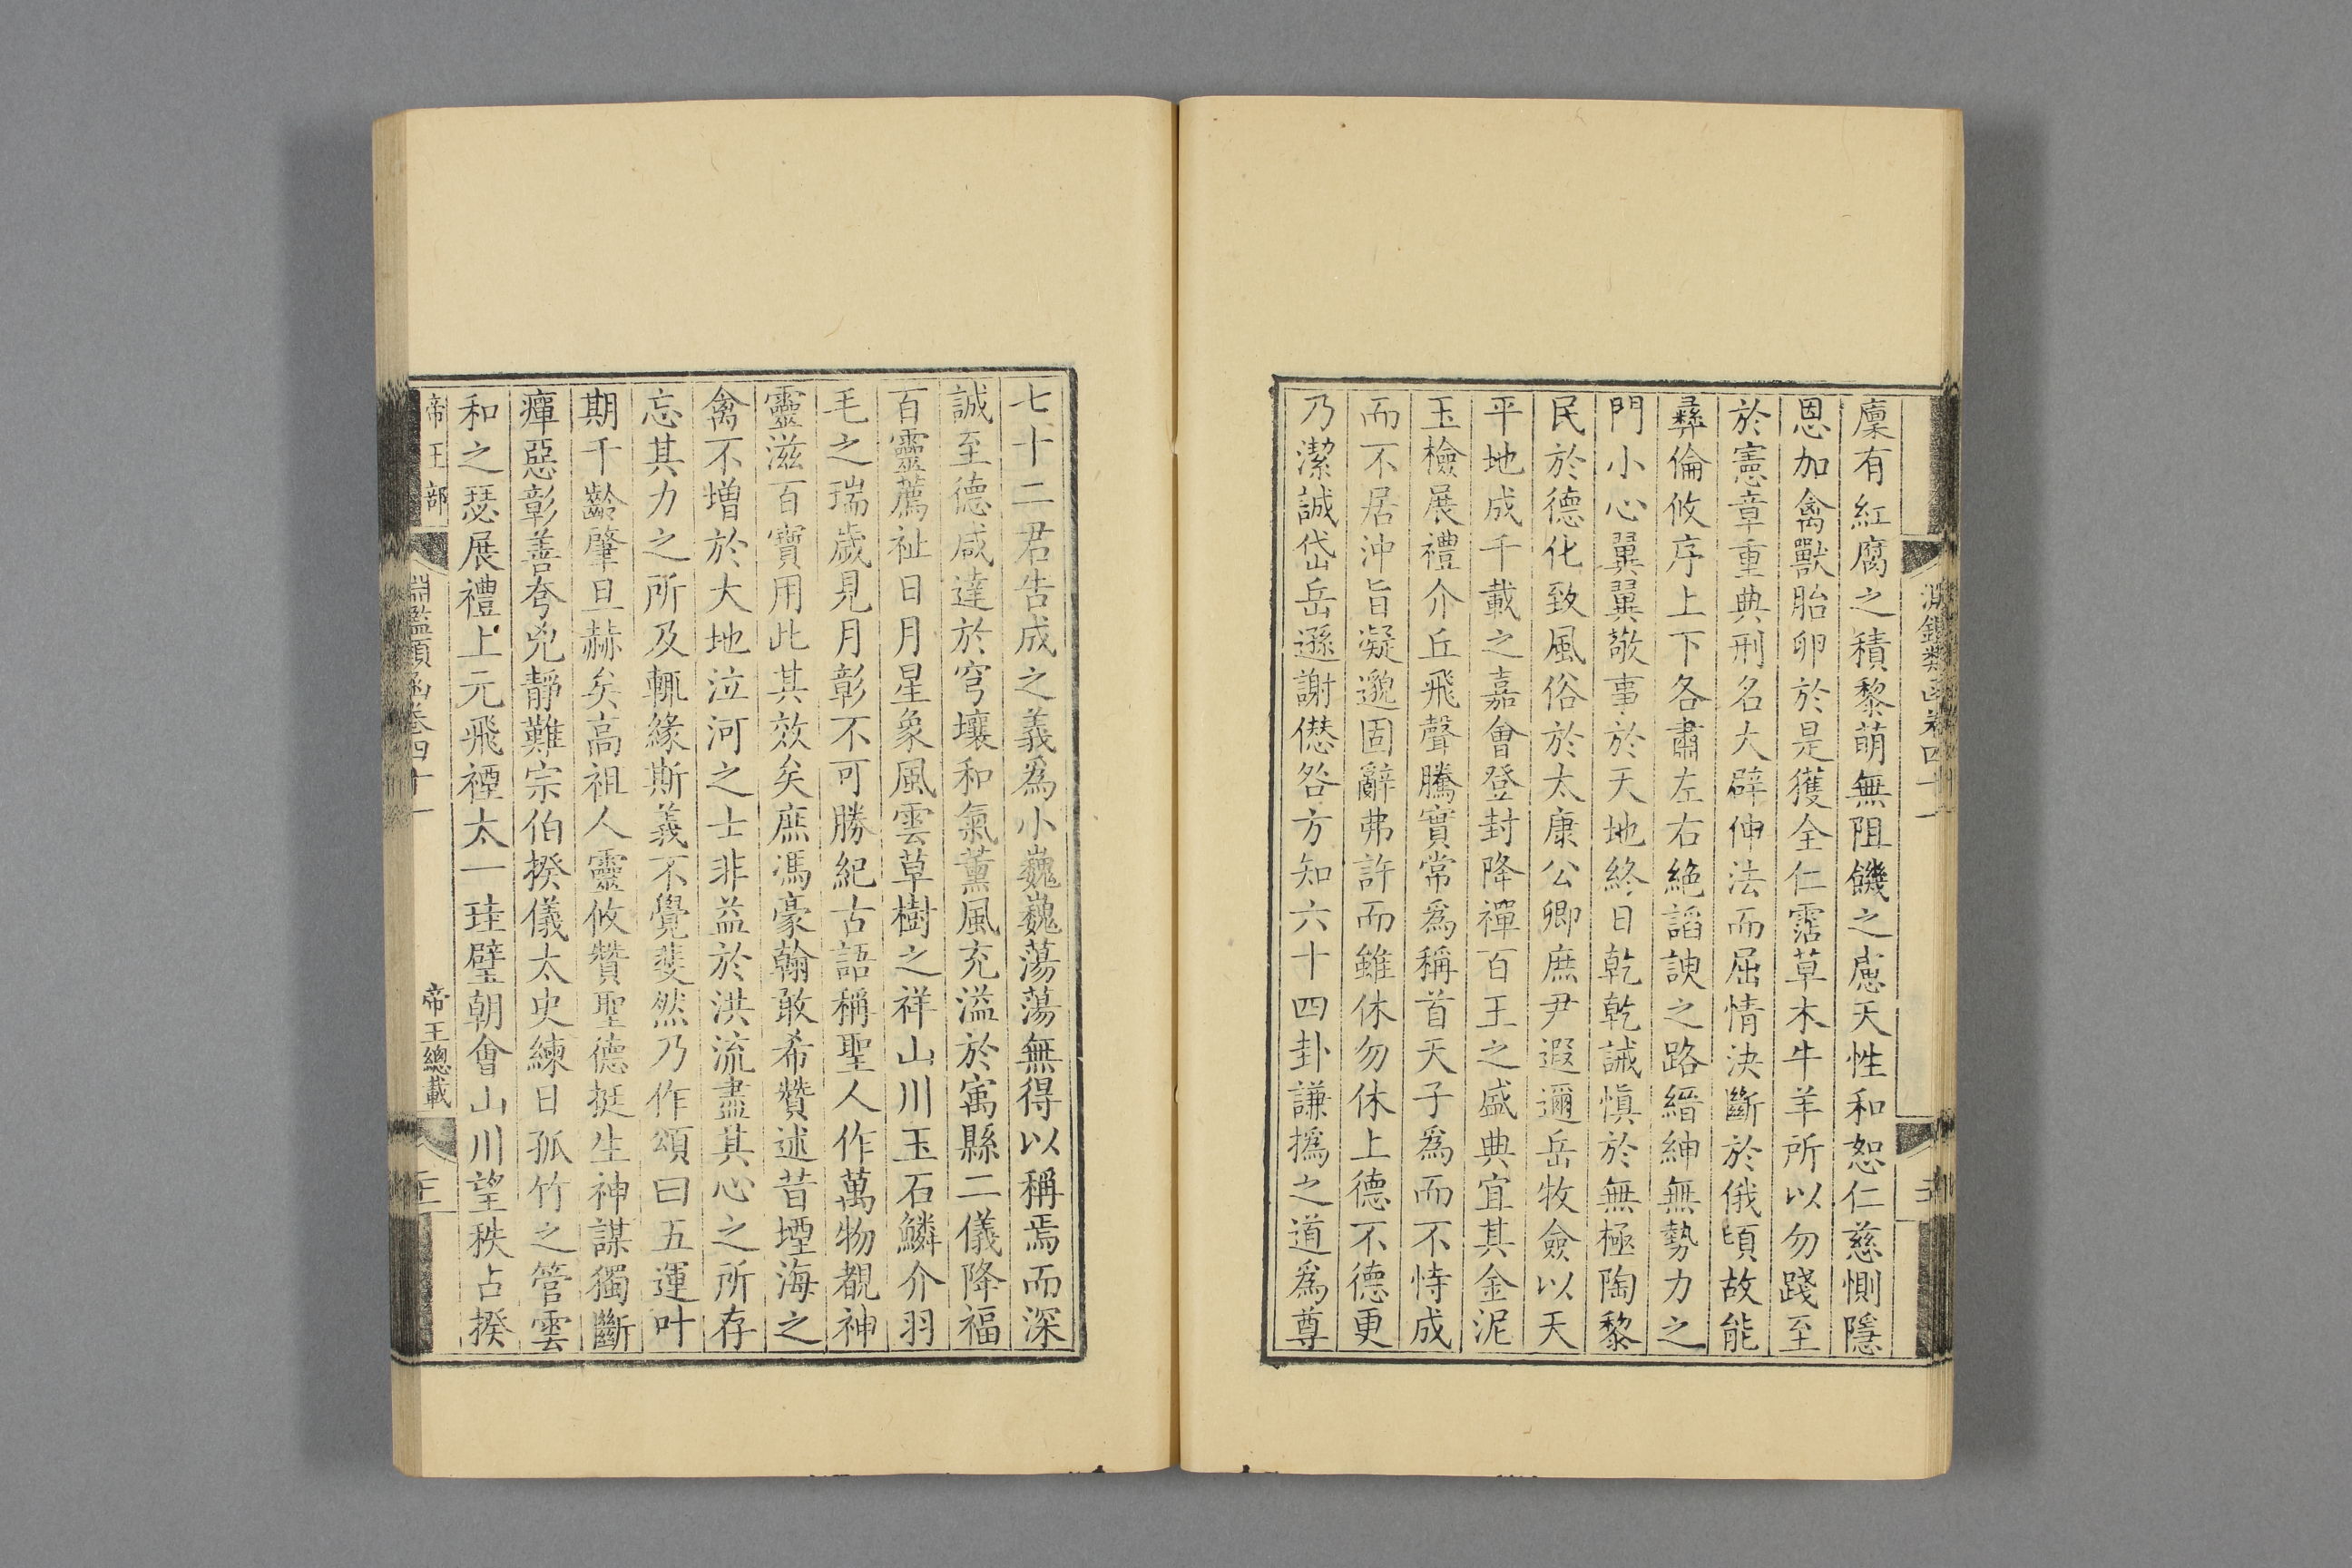 淵鑑類函卷四十一
廩有紅腐之積黎萌無阻饑之慮天性和恕仁慈惻隱
恩加禽獸胎卵於是獲全仁霑草木牛羊所以勿踐至
於憲章重典刑名大辟伸法而屈情決斷於俄頃故能
彝倫攸序上下各肅左右絶謟諛之路縉紳無勢力之
門小心翼翼敬事於天地終日乾乾誡慎於無極陶黎
民於德化致風俗於太康公卿庶尹遐邇岳牧僉以天
平地成千載之嘉會登封降禪百王之盛典宜其金泥
玉檢展禮介丘飛聲騰實常爲稱首天子爲而不恃成
而不居沖旨凝邈固辭弗許而雖休勿休上德不德更
乃潔誠岱岳遜謝僁咎方知六十四卦謙撝之道爲尊
七十二君告成之義爲小巍巍蕩蕩無得以稱焉而深
誠至德咸達於穹壤和氣薰風充溢於寓縣二儀降福
百靈薦祉日月星象風雲草樹之祥山川玉石鱗介羽
毛之瑞歲見月彰不可勝紀古語稱聖人作萬物覩神
靈滋百寶用此其效矣庶馮豪翰敢希贊述昔堙海之
禽不增於大地泣河之士非益於洪流盡其心之所存
忘其力之所及輒緣斯義不覺斐然乃作頌曰五運叶
期千齡肇旦赫矣高祖人靈攸贊聖德挺生神謀獨斷
癉惡彰善夸兇靜難宗伯揆儀太史練日孤竹之管雲
和之瑟展禮上元飛禋太一珪璧朝會山川望秩占揆
帝王部
淵鑑類函卷四十一
帝王總載